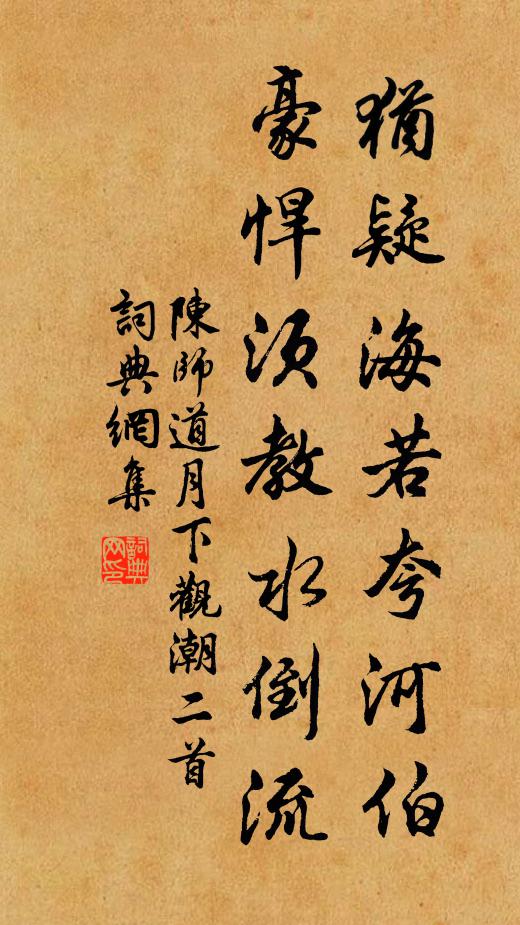 猶疑海若夸河伯
豪悍須教水倒流
陳師道月下觀潮二首
詞典網集
詞典網印